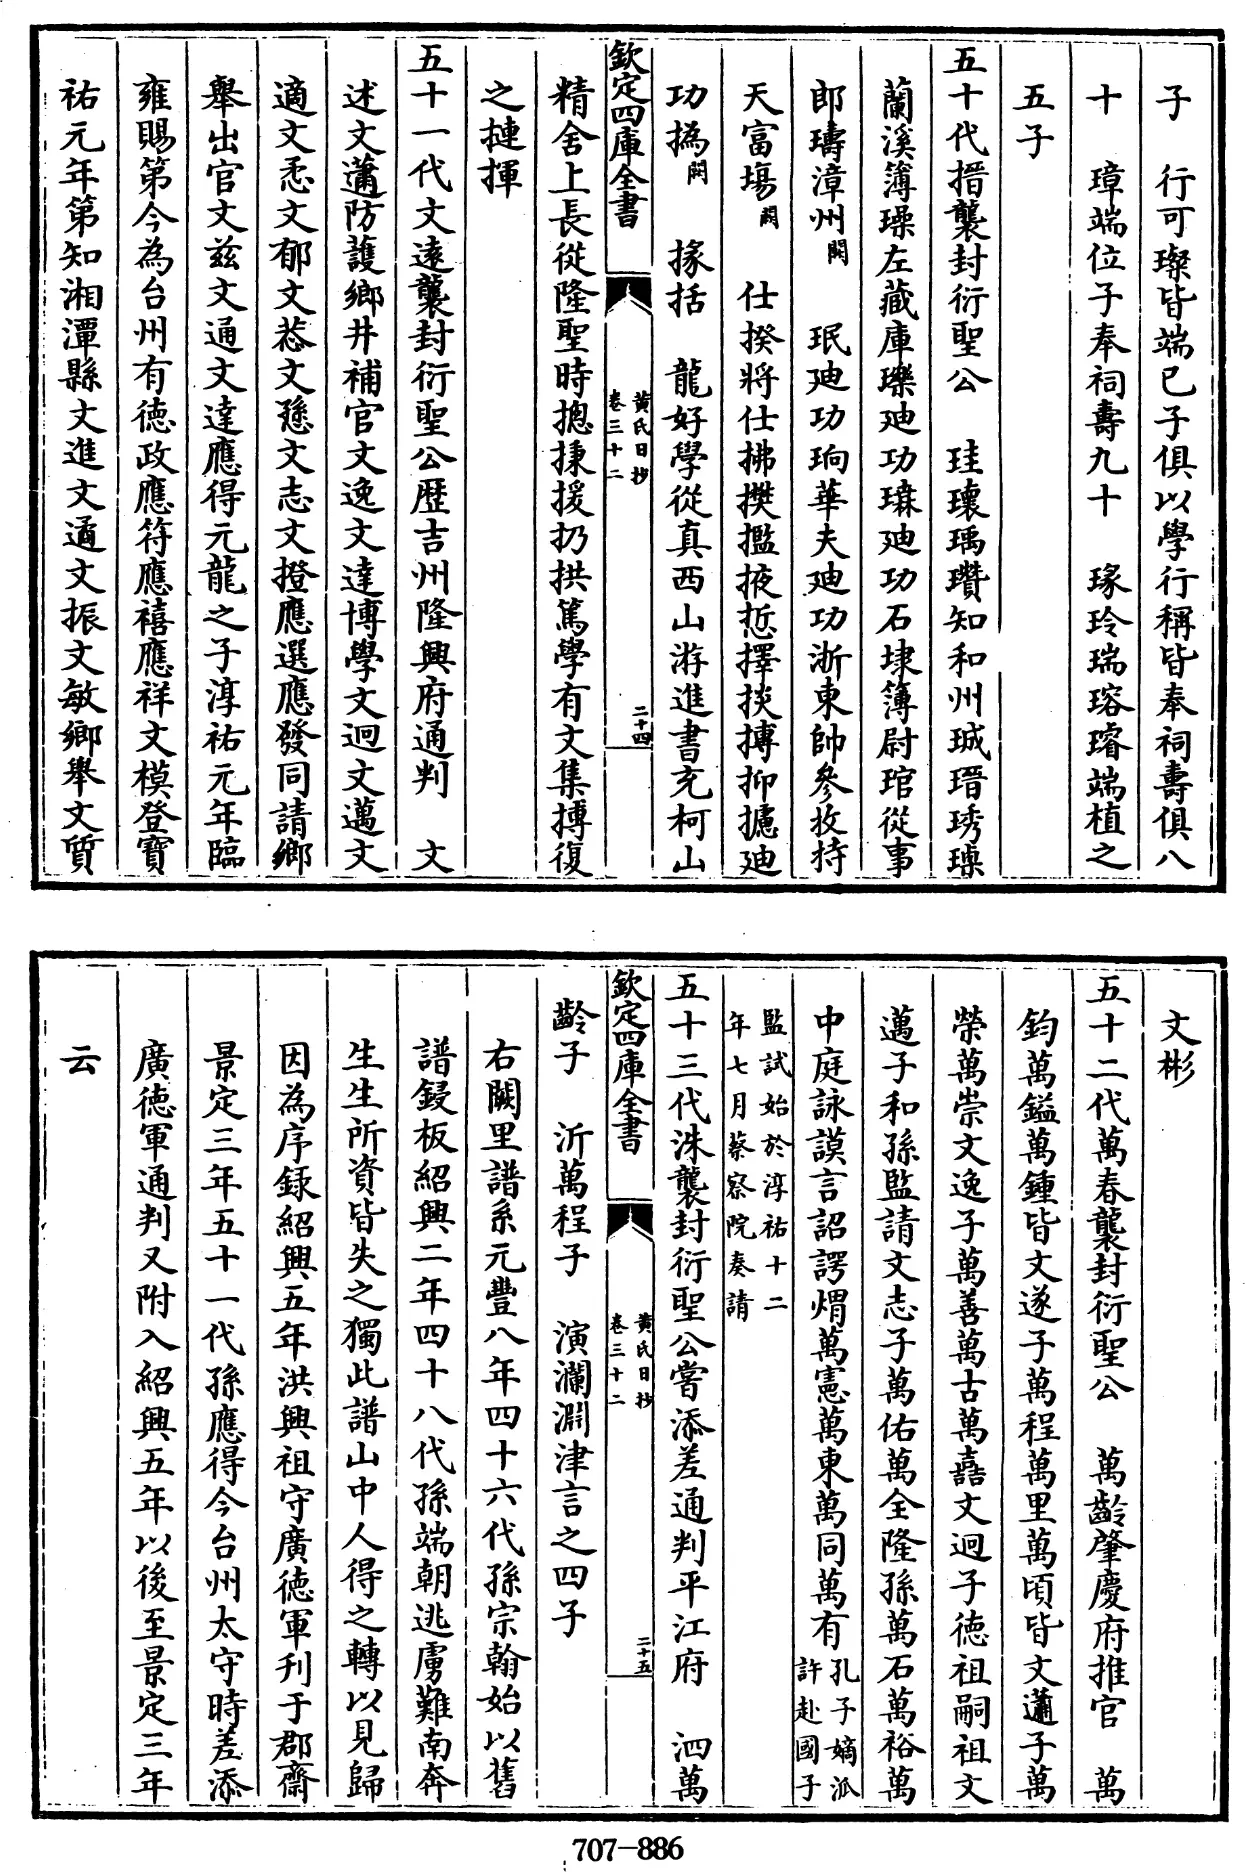 子　行可璨皆端己子俱以學行稱皆奉祠壽俱八
十　璋端位子奉祠壽九十　瑑玲瑞瑢璿端植之
五子
五十代搢襲封衍聖公　珪瓌瑀瓚知和州珹瑨琇瑧
蘭溪簿璪左藏庫㻿廸功㻮廸功石埭簿尉琯從事
郎璹漳州闕　珉廸功珦華夫廸功浙東帥參扙持
天富塲闕　仕揆將仕拂㩳㩜掖㧪擇掞摶抑攄廸
功撝闕　掾括　龍好學從真西山游進書充柯山
欽定四庫全書　黄氏日抄　卷三十二　二十四
精舍上長從隆聖時摠捸援扔拱篤學有文集摶復
之摙揮
五十一代文遠襲封衍聖公歴吉州隆興府通判　文
述文薖防護鄉井補官文逸文達博學文迥文邁文
適文悉文郁文𢙢文愻文志文撜應選應發同請鄉
舉出官文兹文通文達應得元龍之子淳祐元年臨
雍賜第今為台州有徳政應符應禧應祥文模登寳
祐元年第知湘潭縣文進文逎文振文敏鄉舉文質
文彬
五十二代萬春襲封衍聖公　萬齡肇慶府推官　萬
鈞萬鎰萬鍾皆文遂子萬程萬里萬頃皆文薖子萬
榮萬崇文逸子萬善萬古萬嚞文迥子徳祖嗣祖文
邁子和孫監請文志子萬佑萬全隆孫萬石萬裕萬
中庭詠謨言詔諤焆萬憲萬東萬同萬有孔子嫡派許赴國子
監試始於淳祐十二年七月蔡察院奏請
五十三代洙襲封衍聖公嘗添差通判平江府　泗萬
欽定四庫全書　黄氏日抄　卷三十二　二十五
齡子　沂萬程子　演瀾淵津言之四子
右闕里譜系元豐八年四十六代孫宗翰始以舊
譜鋟板紹興二年四十八代孫端朝逃虜難南奔
生生所資皆失之獨此譜山中人得之轉以見歸
因為序録紹興五年洪興祖守廣徳軍刋于郡齋
景定三年五十一代孫應得今台州太守時差添
廣徳軍通判又附入紹興五年以後至景定三年
云
707-886